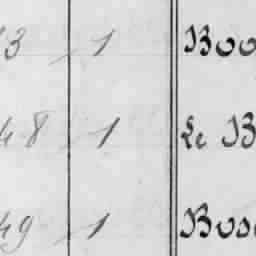 3 1 Boo
48 1 Le B
49 1 Bos